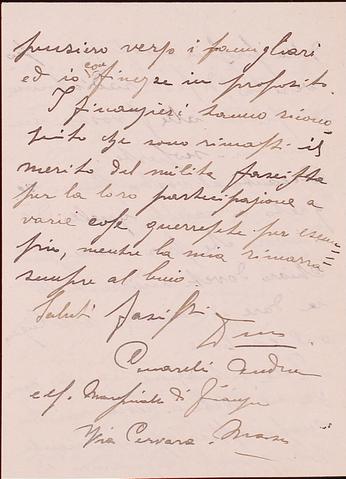 pensiero verso i famigliari
ed io con in proposito.
I finanzieri hanno ricono=
sciuto che sono rimasti il
merito del milite fascista
per la loro partecipazione a
varie cose guerresche per esem=
pio, mentre la mia rimarrà
sempre al buio.
Saluti fascisti
Andrea
ex di
Via Carrara